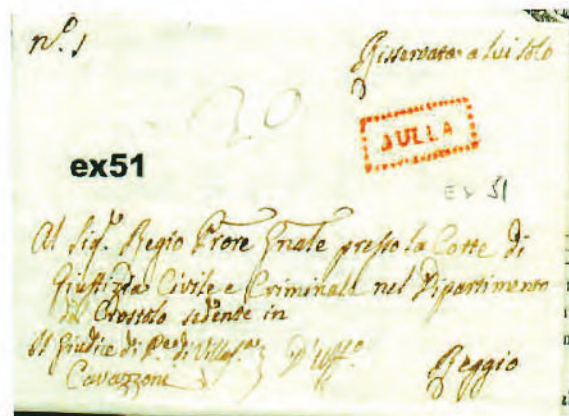 n.º 1
Risservata a lui solo
20
JULLA
ex51
Ex 51
Al Sig.r Regio Prore Gnale presso la Corte di
Giustizia Civile e Criminale nel Dipartimento
del Crostolo sedente in
Il Giudice di Pe. di
D'Uff.o
Reggio
Cavazzoni